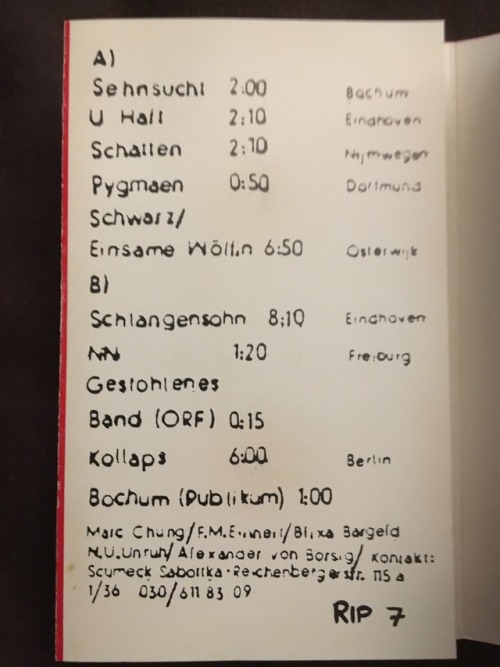 A)
Sehnsucht 2:00 Bochum
U Haft 2:10 Eindhoven
Schatten 2:10 Nijmwegen
Pygmaen 0:50 Dortmund
Schwarz/
Einsame Wölfin 6:50 Osterwijk
B)
Schlangensohn 8:10 Eindhoven
NN 1:20 Freiburg
Gestohlenes
Band (ORF) 0:15
Kollaps 6:00 Berlin
Bochum (Publikum) 1:00
Marc Chung/F.M.Einheit/Blixa Bargeld
N.U.Unruh/Alexander von Borsig/ Kontakt:
Scumeck Sabottka·Reichenbergerstr. 115 a
1/36 030/611 83 09
RIP 7